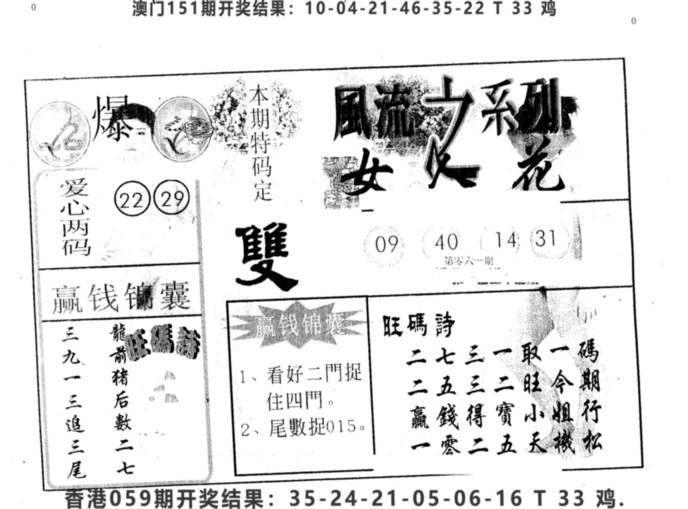 0
澳门151期开奖结果：10-04-21-46-35-22 T 33 鸡
0
爆
本期特码定
雙
風流 系列
女 花
爱心两码
22 29
09 40 14 31
第零六一期
赢钱锦囊
旺碼詩
龍前猪后數二七
三九一三追三尾
赢钱锦囊
1、看好二門捉
住四門。
2、尾數捉015。
旺碼詩
碼期行松
一今姐機
取旺小天
一二寶五
三三得二
七五錢零
二二贏一
香港059期开奖结果：35-24-21-05-06-16 T 33 鸡.